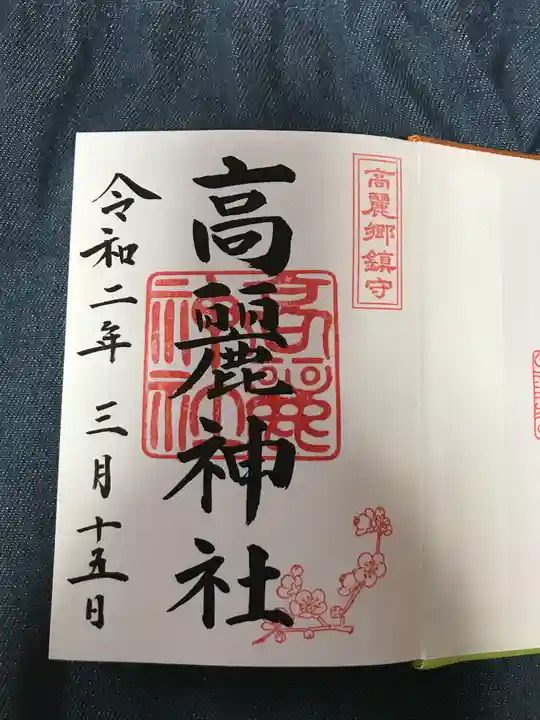 高麗郷鎮守
高麗神社
高麗神社
令和二年 三月十五日